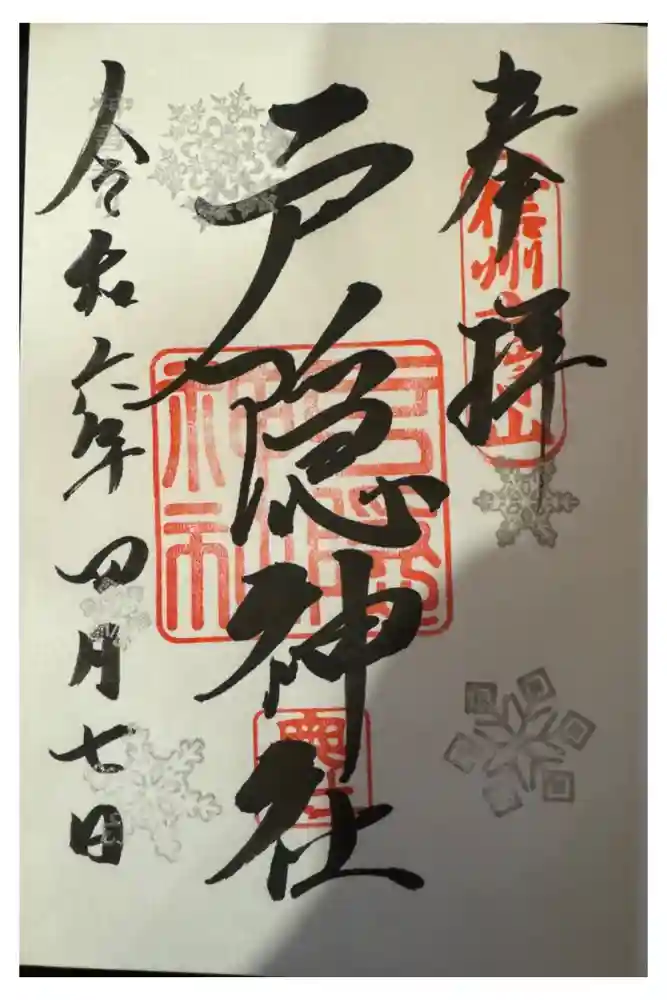 奉拝
信州戸隠山
戸隠神社
戸隠神社
奥社
令和六年四月七日